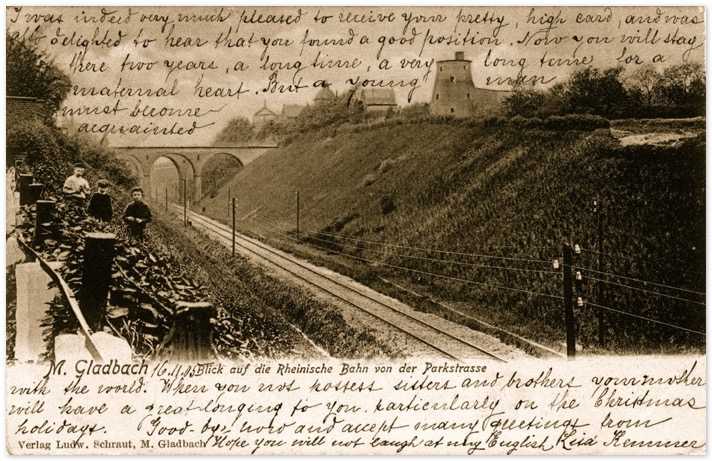 I was indeed very much pleased to receive your pretty, high card, and was
also delighted to hear that you found a good position. Now you will stay
there two years, a long time, a very long time for a
maternal heart. But a young man
must become
acquainted
M. Gladbach 16.11.05 Blick auf die Rheinische Bahn von der Parkstrasse
with the world. When you not possess sisters and brothers your mother
will have a great longing to you, particularly on the Christmas
holidays. Good-bye now and accept many greetings from
Verlag Ludw. Schraut, M. Gladbach Hope you will not laugh at my English